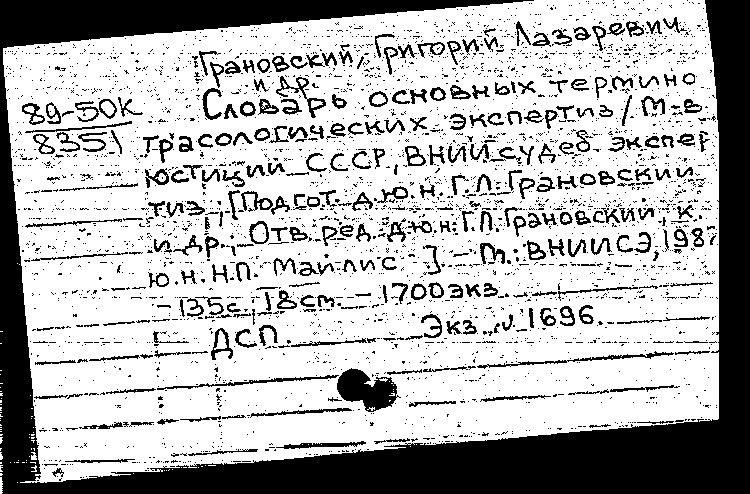 Грановский, Григорий Лазаревич
и др.
89-50К
8351
Словарь основных термино
трасологических экспертиз / М-в
юстиции СССР, ВНИИ судеб. экспер
тиз ; [Подгот. д.ю.н. Г.Л. Грановский
и др.; Отв. ред. д.ю.н. Г.Л. Грановский, к.
ю.н. Н.П. Майлис ]. - М.: ВНИИСЭ, 198
- 135с, 18 см. - 1700 экз
ДСП. Экз. № 1696.